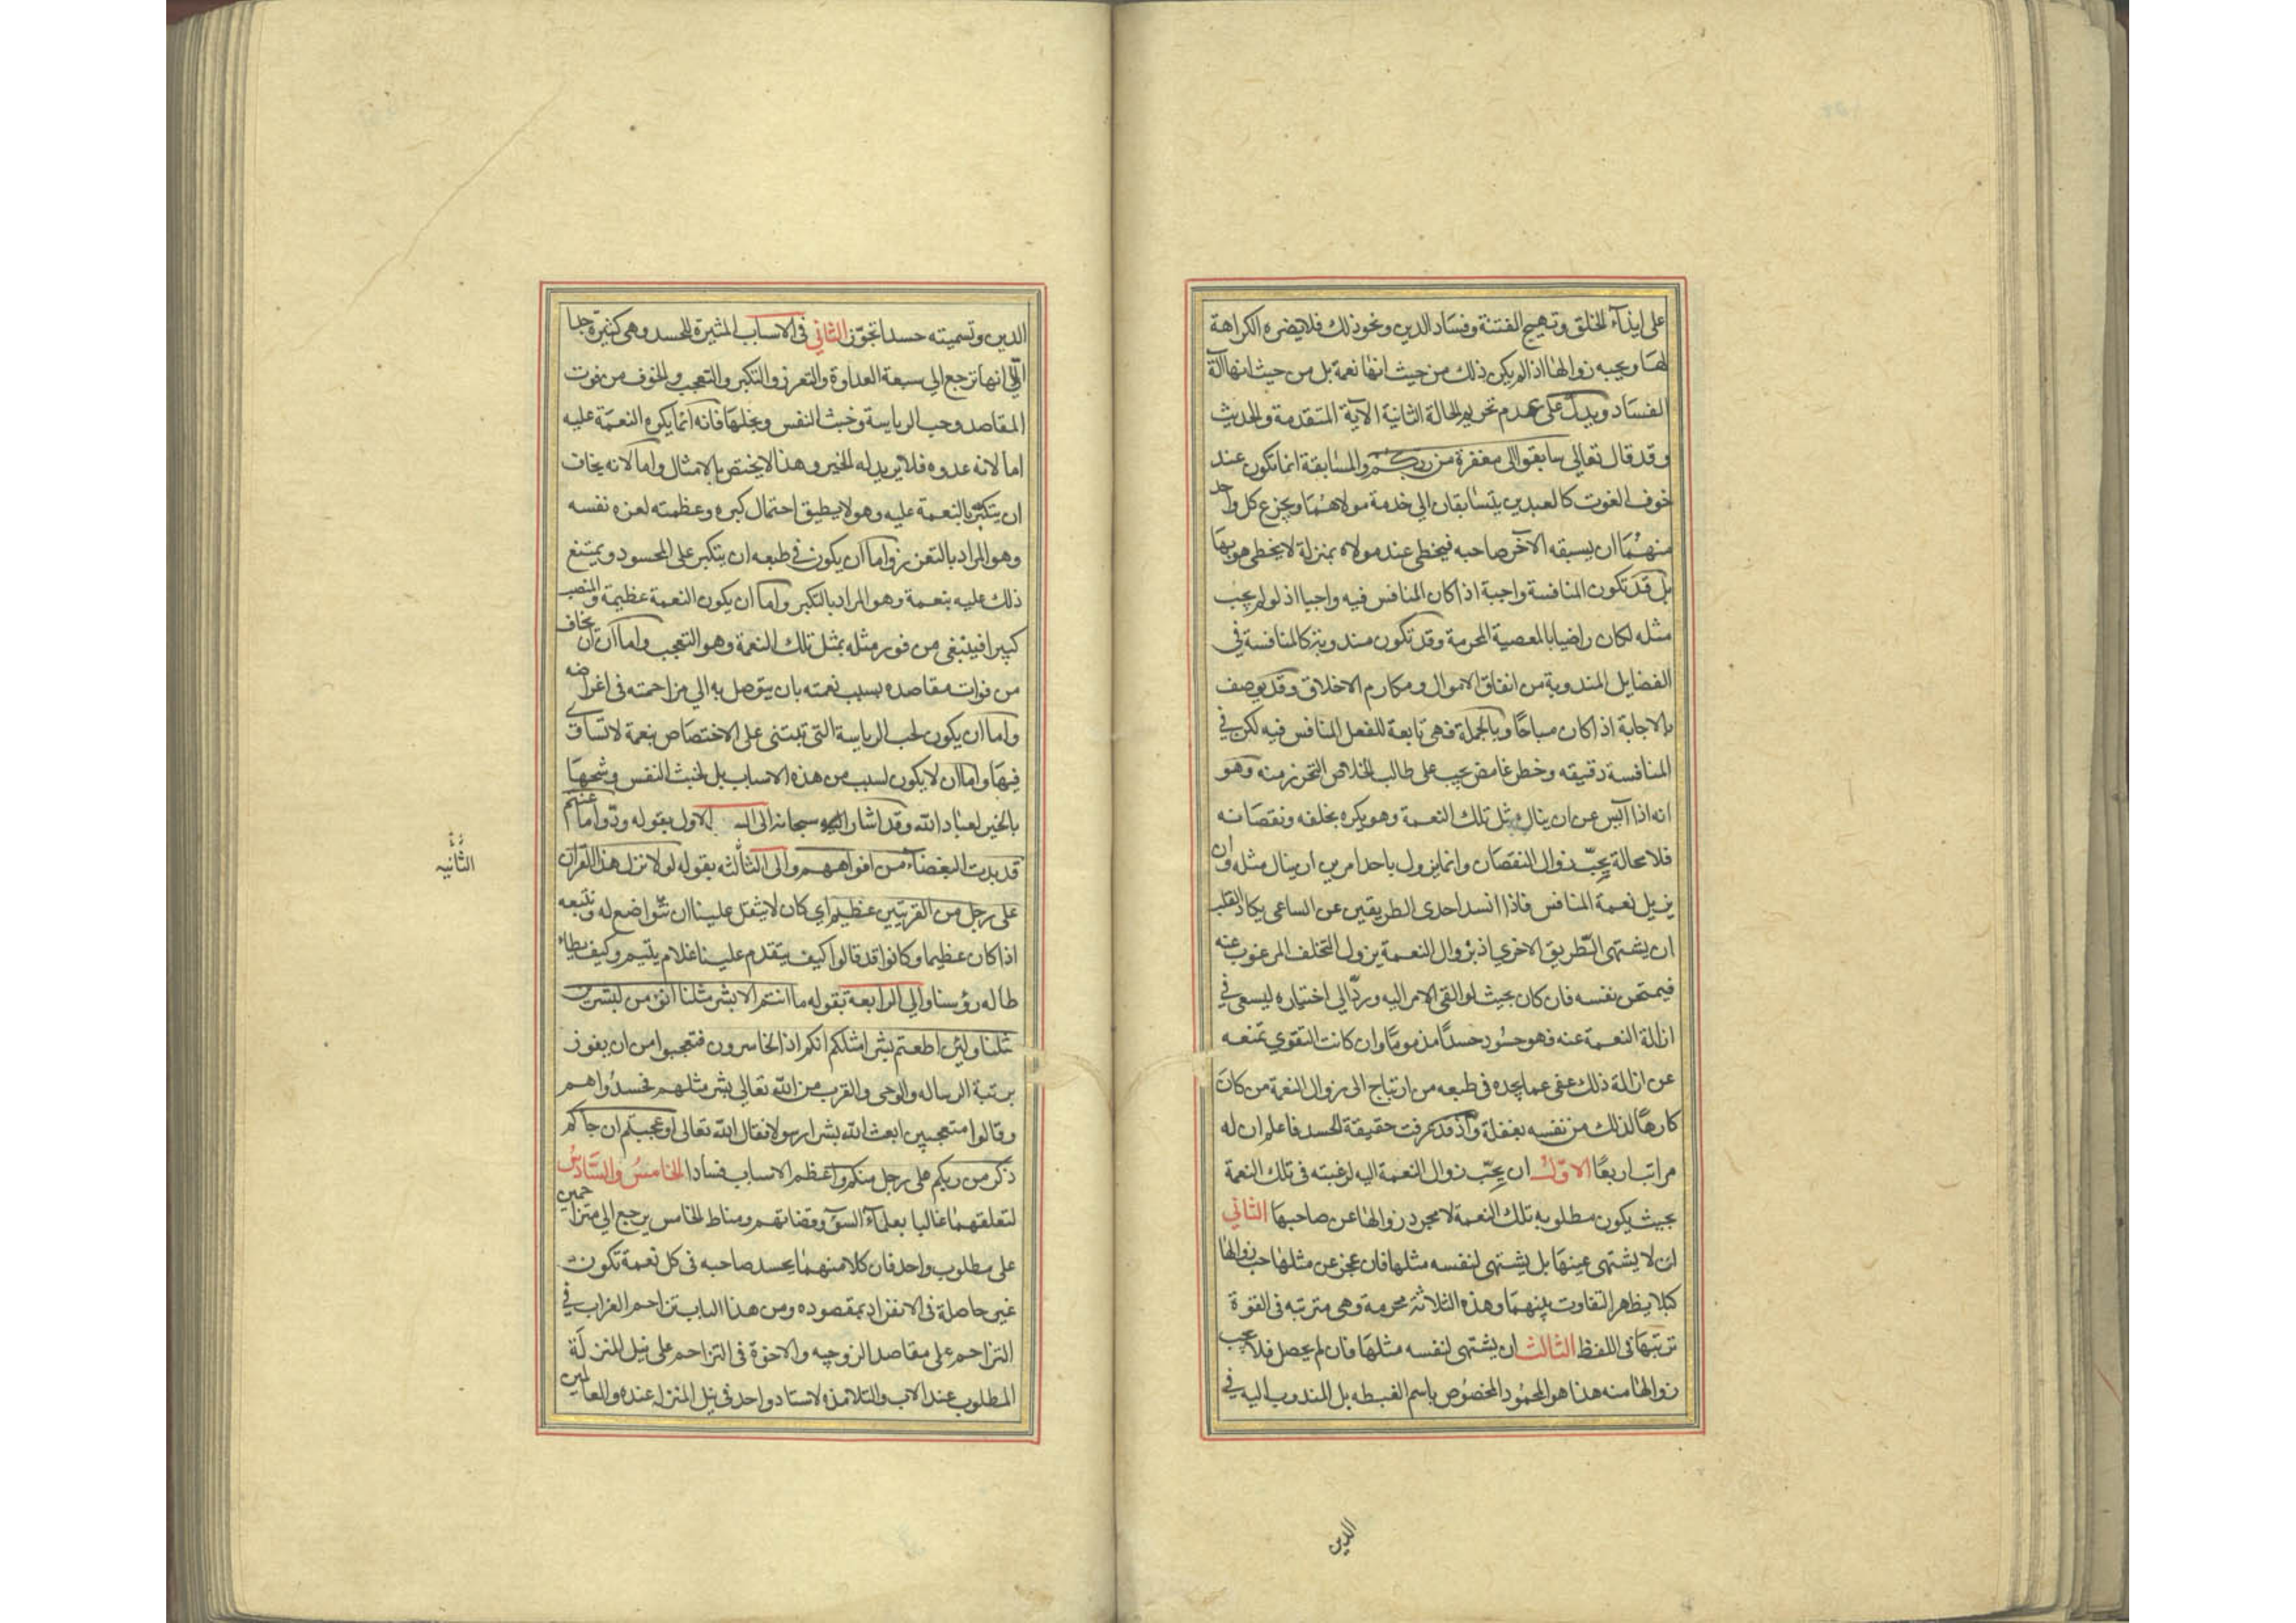 على ايذاء الخلق وتهيج الفتنة وفساد الدين ونحو ذلك فلا يضره الكراهة
لها ويحبه زوالها اذا لم يكن ذلك من حيث انها نعمة بل من حيث انها آلة
الفساد ويدل على عدم تحريم الحالة الثانية الآية المتقدمة والحديث
وقد قال تعالى سابقوا الى مغفرة من ربكم والمسابقة انما تكون عند
خوف الفوت كالعبدين يتسابقان الى خدمة مولاهما ويجزع كل واحد
منهما ان يسبقه الآخر صاحبه فيحظى عند مولاه بمنزلة لا يحظى هو بها
بل قد تكون المنافسة واجبة اذا كان المنافس فيه واجبا اذ لو لم يحب
مثله لكان راضيا بالمعصية المحرمة وقد تكون مندوبة كالمنافسة في
الفضايل المندوبة من انفاق الاموال ومكارم الاخلاق وقد يوصف
بالاجابة اذا كان مباحًا وبالجملة فهي تابعة للفعل المنافس فيه لكن في
المنافسة دقيقه وخطر غامض يجب على طالب الخلاص التحرز منه وهو
انه اذا آيس عن ان ينال مثل تلك النعمة وهو يكره بخلفه ونقصانه
فلا محالة يحبّ زوال النقصان وانما يزول باحد امرين ان ينال مثله وان
يزيل نعمة المنافس فاذا انسد احدى الطريقين عن الساعي يكاد القلب
ان يشتهى الطريق الاخري اذ بزوال النعمة يزول التخلف المرغوب عنه
فيمتحن نفسه فان كان بحيث لو القى الامر اليه وردّ الى اختياره ليسعى في
ازالة النعمة عنه فهو حسود حسدًا مذمومًا وان كانت التقوي تمنعه
عن ازالة ذلك عفى عما يجده في طبعه من ارتياح الى زوال النعمة من كان
كارهًا لذلك من نفسه بغفلة واذ قد عرفت حقيقة الحسد فاعلم ان له
مراتب اربعًا الاوّل ان يحبّ زوال النعمة اليه لرغبته في تلك النعمة
بحيث يكون مطلوبه تلك النعمة لا مجرد زوالها عن صاحبها الثاني
ان لا يشتهى عينها بل يشتهى لنفسه مثلها فان عجز عن مثلها احب زوالها
كيلا يظهر التفاوت بينهما وهذه الثلاثة محرمة وهي مترتبه في القوة
ترتبها في اللفظ الثالث ان يشتهى لنفسه مثلها فان لم يحصل فلا يحب
زوالها منه هذا هو المحمود المخصوص باسم الغبطه بل المندوب اليه في
الدين
الدين وتسميته حسدا تجوّز الثاني في الاسباب المثيرة للحسد وهي كثيرة جدا
الّا انها ترجع الى سبعة العداوة والتعزز والتكبر والتعجب والخوف من فوت
المقاصد وحب الرياسة وخبث النفس وبخلها فانه انما يكره النعمة عليه
اما لانه عدوه فلا يريد له الخير وهذا لا يختص بالامثال واما لانه يخاف
ان يتكبر بالنعمة عليه وهو لا يطيق احتمال كبره وعظمته لعزه نفسه
وهو المراد بالتعزز واما ان يكون في طبعه ان يتكبر على المحسود ويمتنع
ذلك عليه بنعمة وهو المراد بالتكبر واما ان يكون النعمة عظيمة والمنصب
كبيرا فينبغى من فوز مثله بمثل تلك النعمة وهو التعجب واما ان يخاف
من فوات مقاصده بسبب نعمته بان يتوصل به الى مزاحمته في اغراضه
واما ان يكون لحب الرياسة التي تبتنى على الاختصاص بنعمة لا تساوى
فيها واما ان لا يكون لسبب من هذه الاسباب بل لخبث النفس وشحها
بالخير لعباد الله وقد اشار سبحانه الى الاول بقوله ودّوا ما عنتم
قد بدت البغضاء من افواههم والى الثالثه بقوله لولا نزل هذا القرآن
على رجل من القريتين عظيم اي كان لا يثقل علينا ان نتواضع له ونتبعه
اذا كان عظيما وكانوا قد قالوا كيف يتقدم علينا غلام يتيم وكيف يطاء
طا له رؤسنا والي الرابعة بقوله ما انتم الا بشر مثلنا انؤمن لبشرين
مثلنا ولئن اطعتم بشرا مثلكم انكم اذا لخاسرون فتعجبوا من ان يفوز
برتبة الرساله والوحى والقرب من الله تعالى بشر مثلهم فحسدواهم
وقالوا متعجبين ابعث الله بشرا رسولا فقال الله تعالى اوعجبتم ان جاكم
ذكر من ربكم على رجل منكم واعظم الاسباب فسادا الخامس والسَّادس
لتعلقهما غالبا بعلماء السوء وقضاتهم ومناط الخامس يرجع الى متزاحمين
على مطلوب واحد فان كلا منهما يحسد صاحبه في كل نعمة تكون
غير حاصلة في الانفراد بمقصوده ومن هذا الباب تزاحم الضرات في
التزاحم على مقاصد الزوجيه والاخوة في التزاحم على نيل المنزلة
المطلوب عند الاب والتلامذه لاستاد واحد في نيل المنزله عنده والعالمين
الثانيه